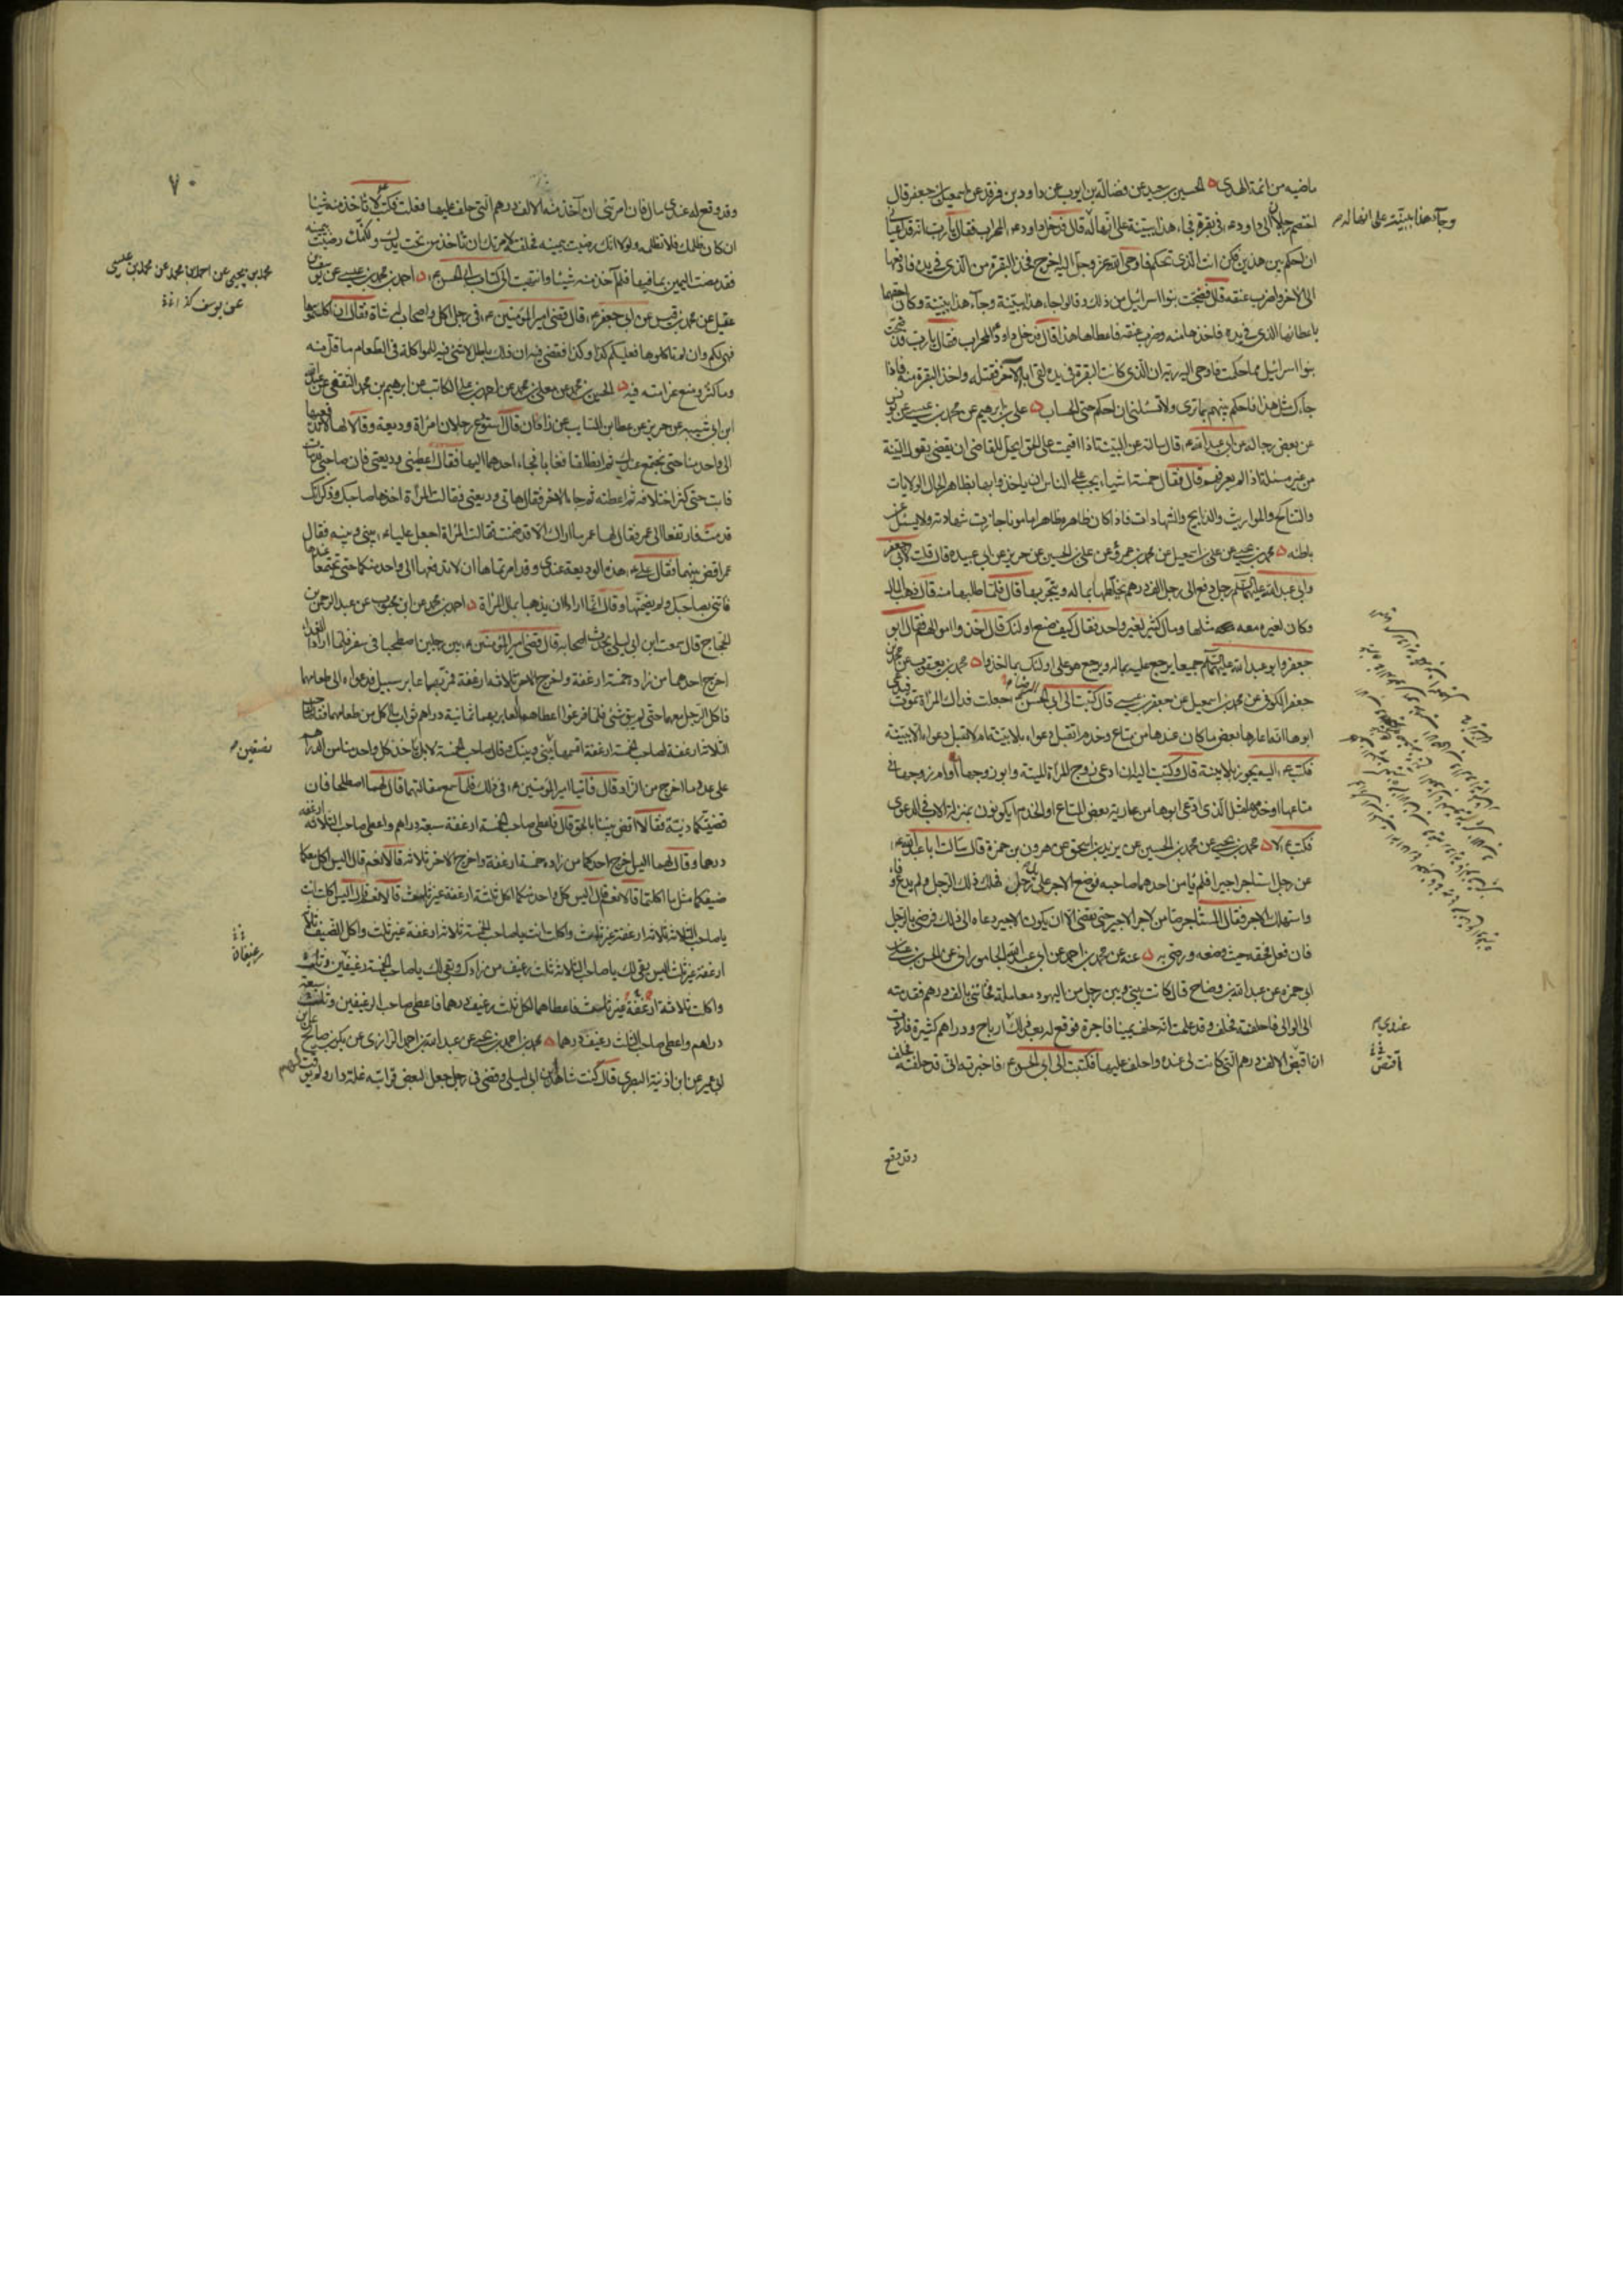 ماضيه من ائمة الهدى الحسين بن سعيد عن فضالة بن ايوب عن داود بن فرقد عن اسمعيل بن جعفر قال
اختصم رجلان الى داود ع فى بقرة فجاء هذا ببينة على انها له قال فدخل داود ع المحراب فقال يا رب انه قد اعيانى
وجآء هذا ببينة على انها له
ان احكم بين هذين فكن انت الذى تحكم فاوحى الله عز وجل اليه اخرج فخذ البقرة من الذى فى يده فادفعها
الى الاخر واضرب عنقه قال فضجت بنوا اسرائيل من ذلك وقالوا جاء هذا ببينة وجآء هذا ببينة وكان احقهما
باعطائها الذى فى يده فاخذها منه وضرب عنقه فاعطاها هذا قال فدخل داود المحراب فقال يا رب قد ضجت
بنوا اسرائيل مما حكمت فاوحى اليه ربه ان الذى كانت البقرة فى يده لقى ابا الآخر فقتله واخذ البقرة منه فاذا
جآءك مثل هذا فاحكم بينهم بما ترى ولا تسئلنى ان احكم حتى الحساب على بن ابرهيم عن محمد بن عيسى عن يونس
عن بعض رجاله عن ابى عبد الله ع قال سالته عن البينة اذا اقيمت على الحق ايحل للقاضى ان يقضى بقول البينة
من غير مسئلة اذا لم يعرفهم قال فقال خمسة اشياء يجب على الناس ان ياخذوا بها بظاهر الحال الولايات
والتناكح والمواريث والذبايح والشهادات فاذا كان ظاهره ظاهرا مامونا جازت شهادته ولا يسئل عن
باطنه محمد بن عيسى عن على بن اسمعيل عن محمد بن عمرو عن على بن الحسين عن حريز عن ابى عبيدة قال قلت لابى جعفر
وابى عبد الله عليهما السلم رجل دفع الى رجل الف درهم يخلطها بماله ويتجر بها قال فلما طلبها منه قال ذهب المال
وكان لغيره معه مثلها ومال كثير لغير واحد فقال كيف صنع اولئك قال اخذوا اموالهم فقال ابو
جعفر وابو عبد الله عليهما السلم جميعا يرجع عليه بماله ويرجع هو على اولئك بما اخذوا محمد بن يعقوب عن محمد بن
جعفر الكوفى عن محمد بن اسمعيل عن جعفر بن عيسى قال كتبت الى ابى الحسن جعلت فداك المراة تموت فيدعى
ابوها انه اعارها بعض ما كان عندها من متاع وخدم اتقبل دعواه بلا بينة ام لا تقبل دعواه الا ببينة
فكتب ع اليه يجوز بلا بينة قال وكتبت اليه ان ادعى زوج المراة الميتة وابو زوجها او ام زوجها فى
متاعها او خدمها مثل الذى ادعى ابوها من عارية بعض المتاع او الخدم ايكونون بمنزلة الاب فى الدعوى
فكتب ع لا محمد بن يحيى عن محمد بن الحسين عن يزيد بن اسحق عن هرون بن حمزة قال سالت ابا عبد الله ع
عن رجل استاجر اجيرا فلم يامن احدهما صاحبه فوضع الاجر على يدى رجل فهلك ذلك الرجل ولم يدع وفاء
واستهلك الاجر فقال المستاجر ضامن لاجر الاجير حتى يقضى الا ان يكون الاجير دعاه الى ذلك فرضى بالرجل
فان فعل فحقه حيث وضعه ورضى به عنه عن محمد بن احمد عن ابى عبد الله الجامورانى عن الحسن بن على بن
ابى حمزة عن عبد الله بن وضاح قال كانت بينى وبين رجل من اليهود معاملة فخاننى بالف درهم فقدمته
الى الوالى فاحلفته فحلف وقد علمت انه حلف يمينا فاجرة فوقع له بعد ذلك ارباح ودراهم كثيرة فاردت
عندى
ان اقبض الالف درهم التى كانت لى عنده واحلف عليها فكتبت الى ابى الحسن ع فاخبرته انى قد حلفته فحلف
اقتص
وقد وقع
٧٠
وقد وقع له عندى مال فان امرتنى ان آخذ منه الالف درهم التى حلف عليها فعلت فكتب لا تاخذ منه شيئا
ان كان ظلمك فلا تظلمه ولولا انك رضيت بيمينه فحلفته لامرتك ان تاخذ من تحت يدك ولكنك رضيت بيمينه
فقد مضت اليمين بما فيها فلم آخذ منه شيئا وانتهيت الى كتاب ابى الحسن ع احمد بن محمد بن عيسى عن يوسف بن
محمد بن يحيى عن احمد بن محمد عن محمد بن عيسى
عن يوسف
عقيل عن محمد بن قيس عن ابى جعفر ع قال قضى امير المؤمنين ع فى رجل اكل واصحاب له شاة فقال ان اكلتموها
فهى لكم وان لم تاكلوها فعليكم كذا وكذا فقضى فيه ان ذلك باطل لا شىء فيه للمواكلة فى الطعام ما قل منه
وما كثر ومنع غرامته فيه الحسين بن محمد عن معلى بن محمد عن احمد بن على الكاتب عن ابرهيم بن محمد الثقفى عن عبد الله
ابن ابى شيبه عن حريز عن عطا بن السائب عن زاذان قال استودع رجلان امرأة وديعة وقالا لها لا تدفعيها
الى واحد منا حتى نجتمع عندك ثم انطلقا فغابا فجاء احدهما اليها فقال اعطينى وديعتى فان صاحبى قد مات
فابت حتى كثر اختلافه ثم اعطته ثم جاء الاخر فقال هاتى وديعتى فقالت المرأة اخذها صاحبك وذكر انك
قد مت فارتفعا الى عمر فقال لها عمر ما اراك الا قد ضمنت فقالت المرأة اجعل عليا ع بينى وبينه فقال
عمر اقض بينهما فقال على ع هذه الوديعة عندى وقد امرتماها ان لا تدفعها الى واحد منكما حتى تجتمعا عندها
فائتنى بصاحبك ولم يضمنها وقال انما ارادا ان يذهبا بمال المرأة احمد بن محمد عن ابن محبوب عن عبد الرحمن بن
الحجاج قال سمعت ابن ابى ليلى يحدث اصحابه قال قضى امير المؤمنين ع بين رجلين اصطحبا فى سفر فلما ارادا الغداء
اخرج احدهما من زاده خمسة ارغفة واخرج الاخر ثلاثة ارغفة فمر بهما عابر سبيل فدعواه الى طعامهما
فاكل الرجل معهما حتى لم يبق شىء فلما فرغوا اعطاهما العابر بهما ثمانية دراهم ثواب ما اكل من طعامهما فقال صاحب
الثلاثة ارغفة لصاحب الخمسة ارغفة اقسمها بينى وبينك وقال صاحب الخمسة لا بل ياخذ كل واحد منا من الدراهم
نصفين
على عدد ما اخرج من الزاد قال فاتيا امير المؤمنين ع فى ذلك فلما سمع مقالتهما قال لهما اصطلحا فان
قضيتكما دنية فقالا اقض بيننا بالحق قال فاعطى صاحب الخمسة ارغفة سبعة دراهم واعطى صاحب الثلاثة ارغفة
درهما وقال لهما اليس اخرج احدكما من زاده خمسة ارغفة واخرج الاخر ثلاثة قالا نعم قال اليس اكل معكما
ضيفكما مثل ما اكلتما قالا نعم قال اليس كل واحد منكما اكل ثلثة ارغفة غير ثلث قالا نعم قال اليس اكلت انت
يا صاحب الثلاثة ثلاثة ارغفة غير ثلث واكلت انت يا صاحب الخمسة ثلاثة ارغفة غير ثلث واكل الضيف ثلاثة
رغيفان
ارغفة غير ثلث اليس بقى لك يا صاحب الثلاثة ثلث رغيف من زادك وبقى لك يا صاحب الخمسة رغيفين وثلث
واكلت ثلاثة ارغفة غير ثلث فاعطاهما لكل ثلث رغيف درهما فاعطى صاحب الرغيفين وثلث سبعة
دراهم واعطى صاحب الثلث رغيف درهما محمد بن احمد بن يحيى عن عبد الله بن احمد الرازى عن بكر بن صالح عن ابن
ابى عمير عن ابن اذينة البصرى قال كنت شاهد ابن ابى ليلى وقضى فى رجل جعل لبعض قرابته غلة دار ولم يوقت لهم